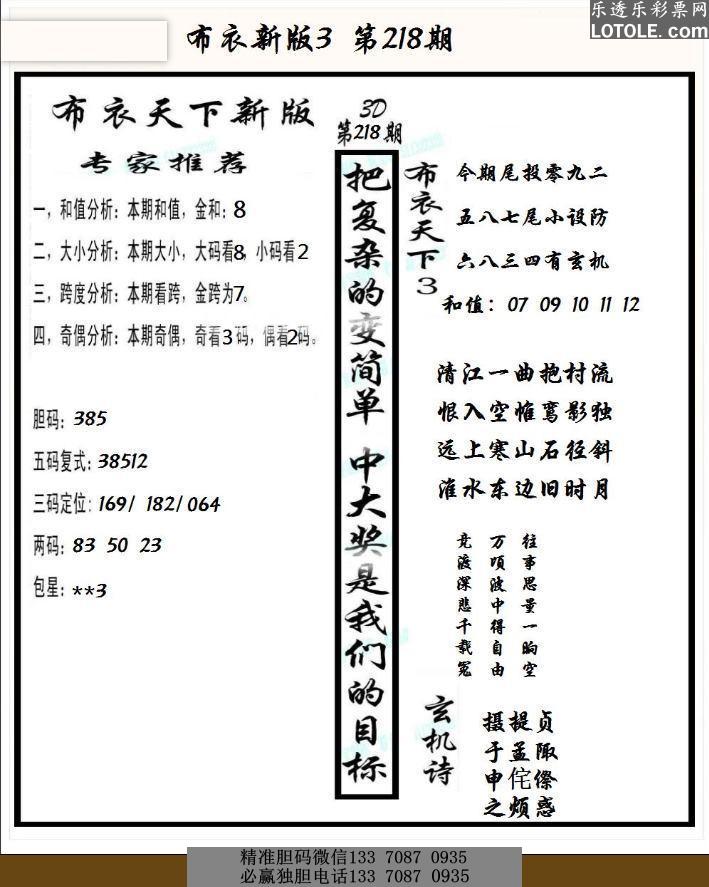 乐透乐彩票网
LOTOLE.com
布衣新版3 第218期
布衣天下新版
专家推荐
一，和值分析：本期和值，金和：8
二，大小分析：本期大小，大码看8，小码看2
三，跨度分析：本期看跨，金跨为7。
四，奇偶分析：本期奇偶，奇看3码，偶看2码。
胆码：385
五码复式：38512
三码定位：169/ 182/ 064
两码：83 50 23
包星：**3
3D
第218期
把复杂的变简单 中大奖是我们的目标
布衣天下3
今期尾投零九二
五八七尾小设防
六八三四有玄机
和值：07 09 10 11 12
清江一曲抱村流
恨入空帷鸾影独
远上寒山石径斜
淮水东边旧时月
往事思量一晌空
万顷波中得自由
竞渡深悲千载冤
玄机诗
摄提贞
于孟陬
申侘傺
之烦惑
精准胆码微信133 7087 0935
必赢独胆电话133 7087 0935